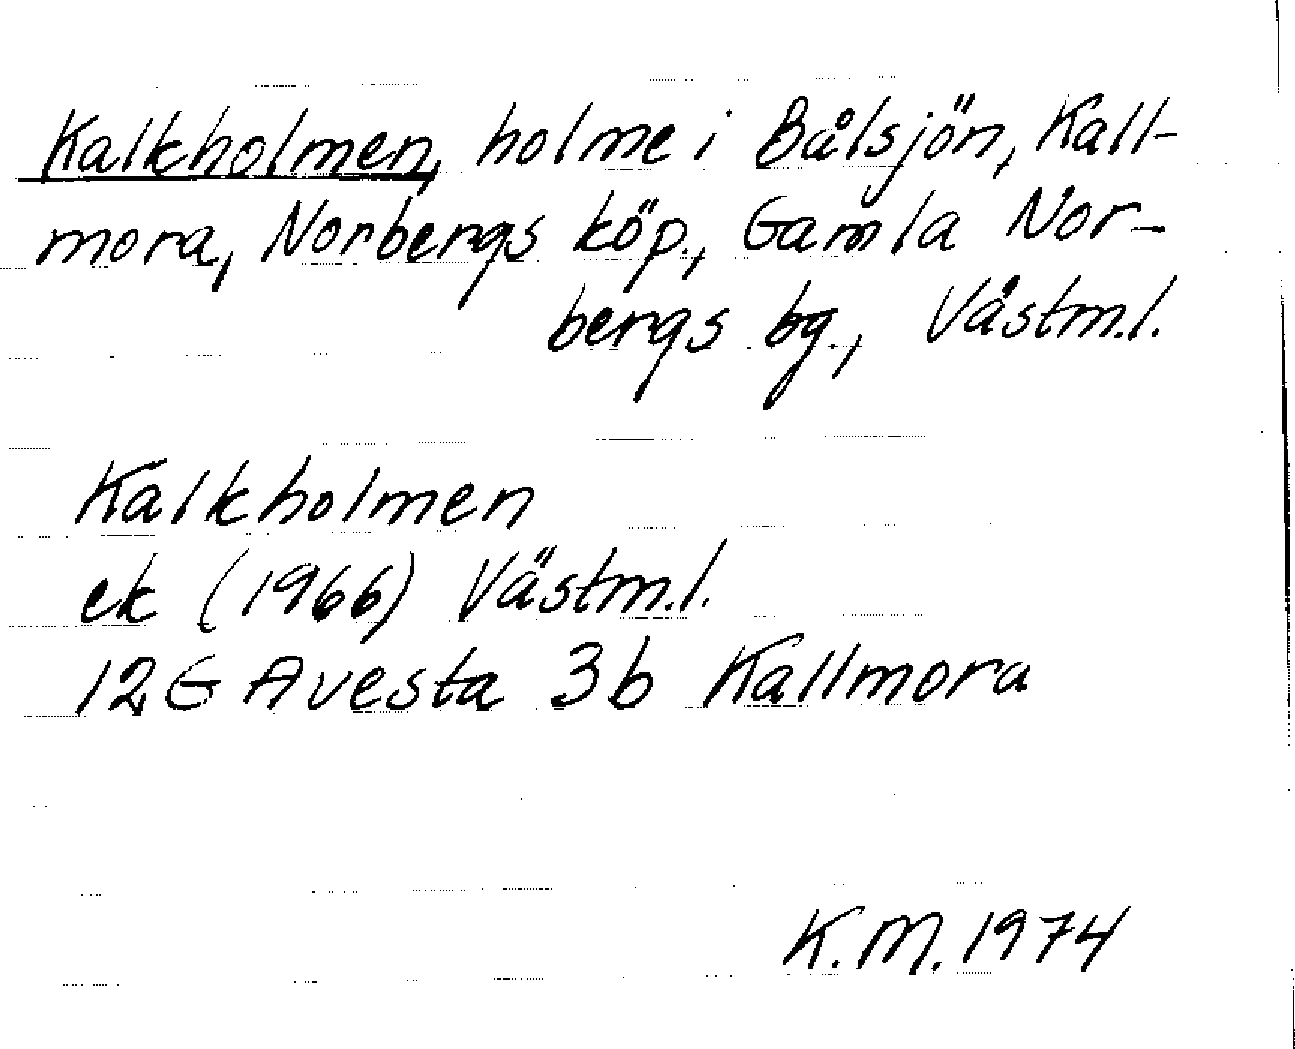 Kalkholmen, holme i Bålsjön, Kall-
mora, Norbergs köp., Gamla Nor-
bergs bg., Västm.l.
Kalkholmen
ek (1966) Västm.l.
12G Avesta 3b Kallmora
K.M. 1974